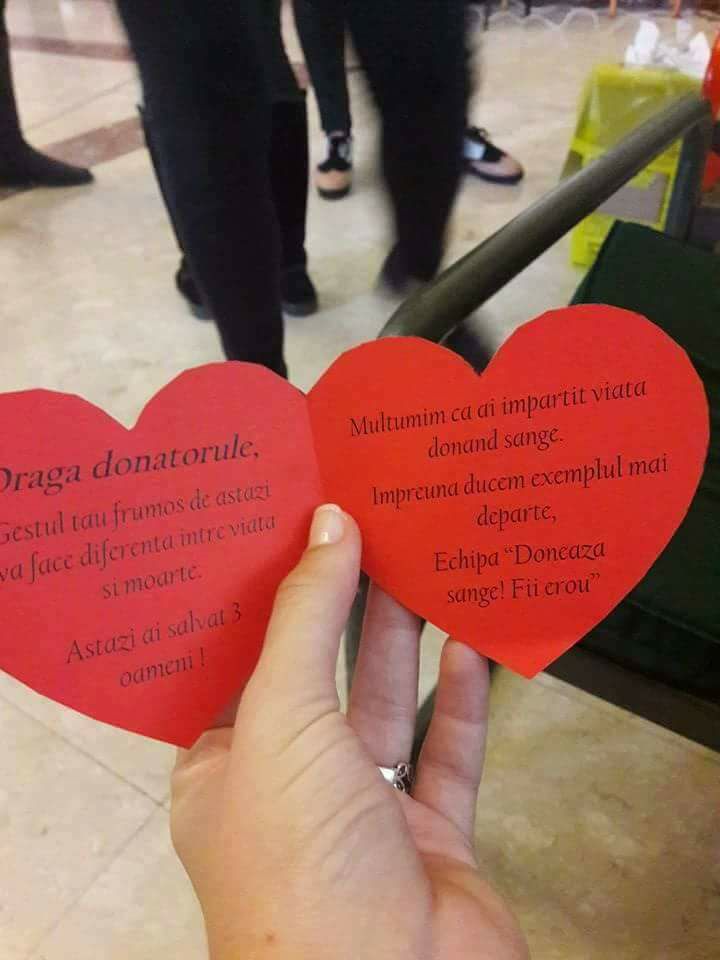 Draga donatorule,
Gestul tau frumos de astazi
va face diferenta intre viata
si moarte.
Astazi ai salvat 3
oameni !
Multumim ca ai impartit viata
donand sange.
Impreuna ducem exemplul mai
departe,
Echipa “Doneaza
sange! Fii erou”